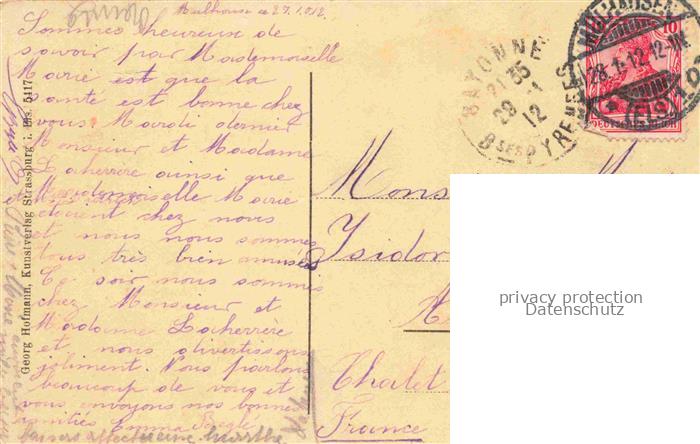 Mulhouse ce 27.1.1912.
Sommes heureuse de
savoir par Mademoiselle
Marie est que la
santé est bonne chez
vous Mardi dernier
Monsieur et Madame
Lacherrere ainsi que
Mademoiselle Marie
étaient chez nous
et nous nous sommes
tous très bien amusés
Ce soir nous sommes
chez Monsieur et
Madame Lacherrere
et nous divertissons
joliment. Nous parlons
beaucoup de vous et
vous envoyons nos bonnes
amitiés Emma
Georg Hofmann, Kunstverlag Strassburg i. Els. 5417
BAYONNE
21 35
28 1
12
Bses PYRENEES
MÜLHAUSEN
28.1.12.12-1N
(ELS)
10
DEUTSCHES REICH
Mons
Isidor
Chalet
France
privacy protection
Datenschutz